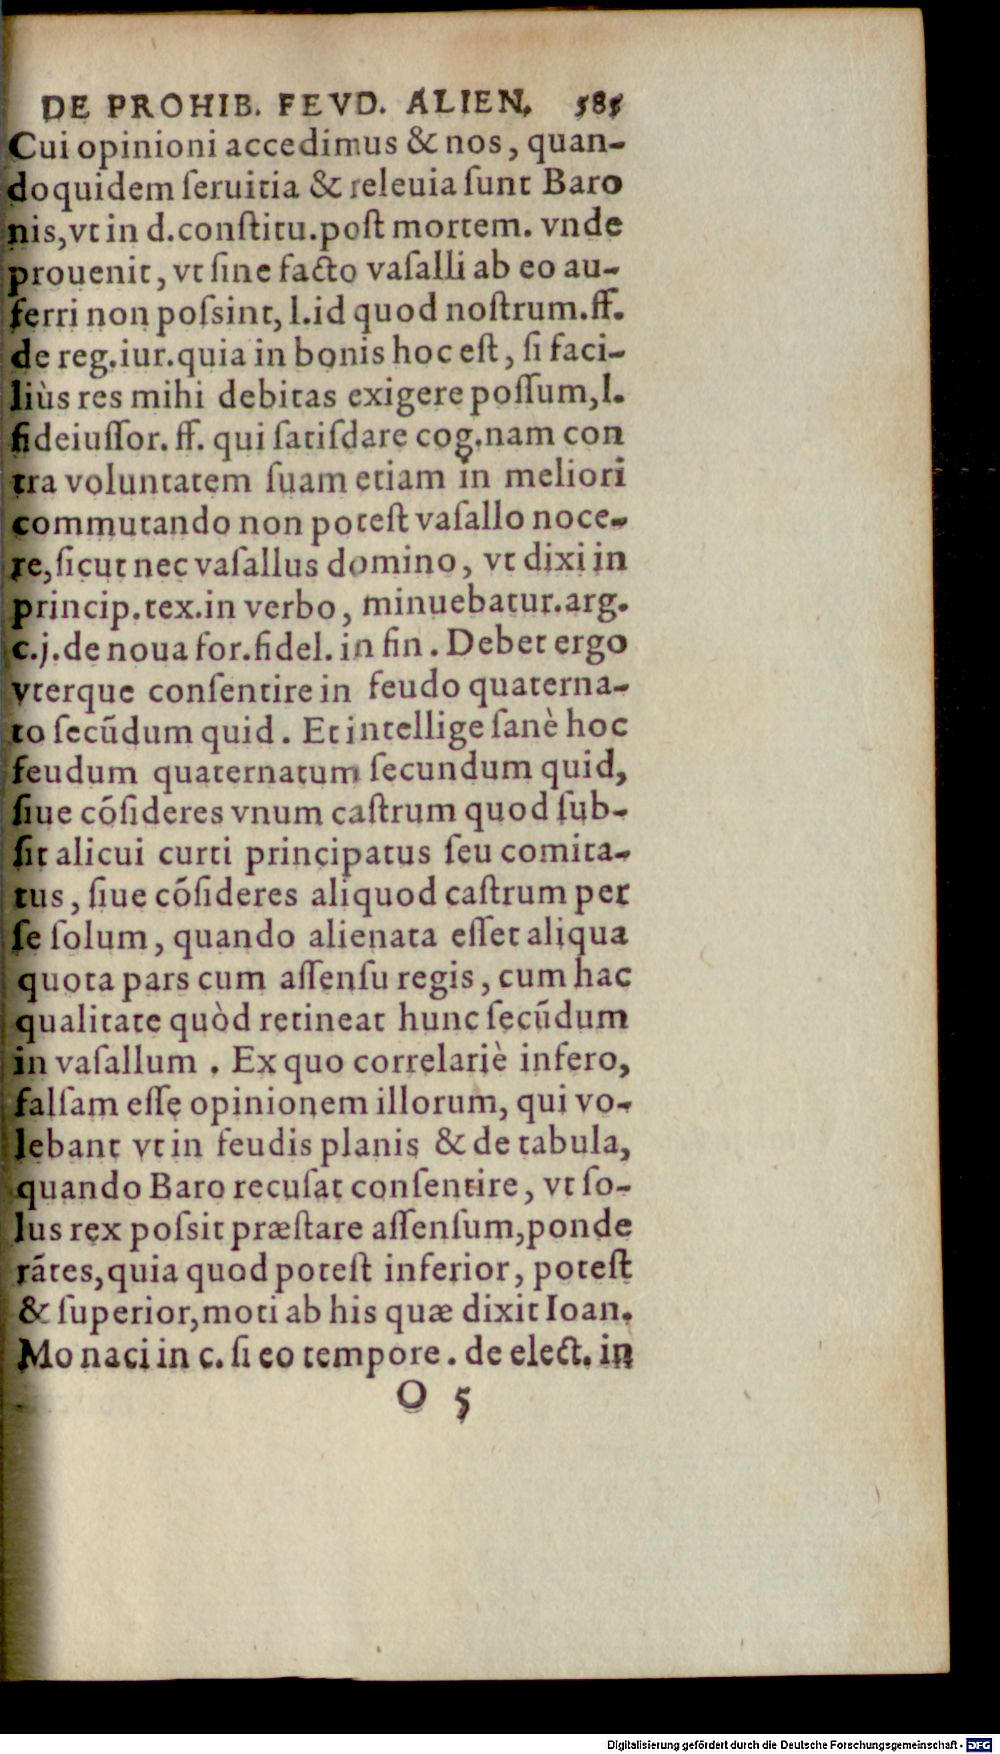 DE PROHIB. FEVD. ALIEN. 585
Cui opinioni accedimus & nos, quan-
doquidem ſeruitia & releuia ſunt Baro
nis,vt in d.conſtitu.poſt mortem. vnde
prouenit, vt ſine facto vaſalli ab eo au-
ferri non poſsint, l.id quod noſtrum.ff.
de reg.iur.quia in bonis hoc eſt, ſi faci-
liùs res mihi debitas exigere poſſum,l.
fideiuſſor. ff. qui ſatiſdare cog.nam con
tra voluntatem ſuam etiam in meliori
commutando non poteſt vaſallo noce-
re,ſicut nec vaſallus domino, vt dixi in
princip.tex.in verbo, minuebatur.arg.
c.j.de noua for.fidel. in fin. Debet ergo
vterque conſentire in feudo quaterna-
to ſecũdum quid. Et intellige ſanè hoc
feudum quaternatum ſecundum quid,
ſiue cõſideres vnum caſtrum quod ſub-
ſit alicui curti principatus ſeu comita-
tus, ſiue cõſideres aliquod caſtrum per
ſe ſolum, quando alienata eſſet aliqua
quota pars cum aſſenſu regis, cum hac
qualitate quòd retineat hunc ſecũdum
in vaſallum. Ex quo correlariè infero,
falſam eſſe opinionem illorum, qui vo-
lebant vt in feudis planis & de tabula,
quando Baro recuſat conſentire, vt ſo-
lus rex poſsit præſtare aſſenſum,ponde
rãtes,quia quod poteſt inferior, poteſt
& ſuperior,moti ab his quæ dixit Ioan.
Monaci in c. ſi eo tempore. de elect. in
O 5
Digitalisierung gefördert durch die Deutsche Forschungsgemeinschaft - DFG